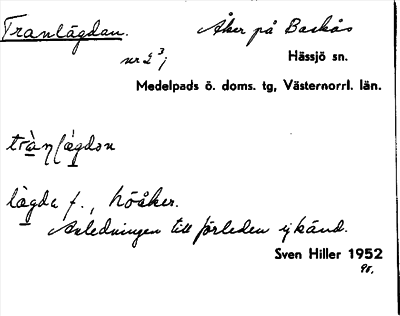 Tranlägdan. Åker på Backås
nr 2³;
Hässjö sn.
Medelpads ö. doms. tg, Västernorrl. län.
lägda f., höåker.
Anledningen till förleden ej känd.
Sven Hiller 1952